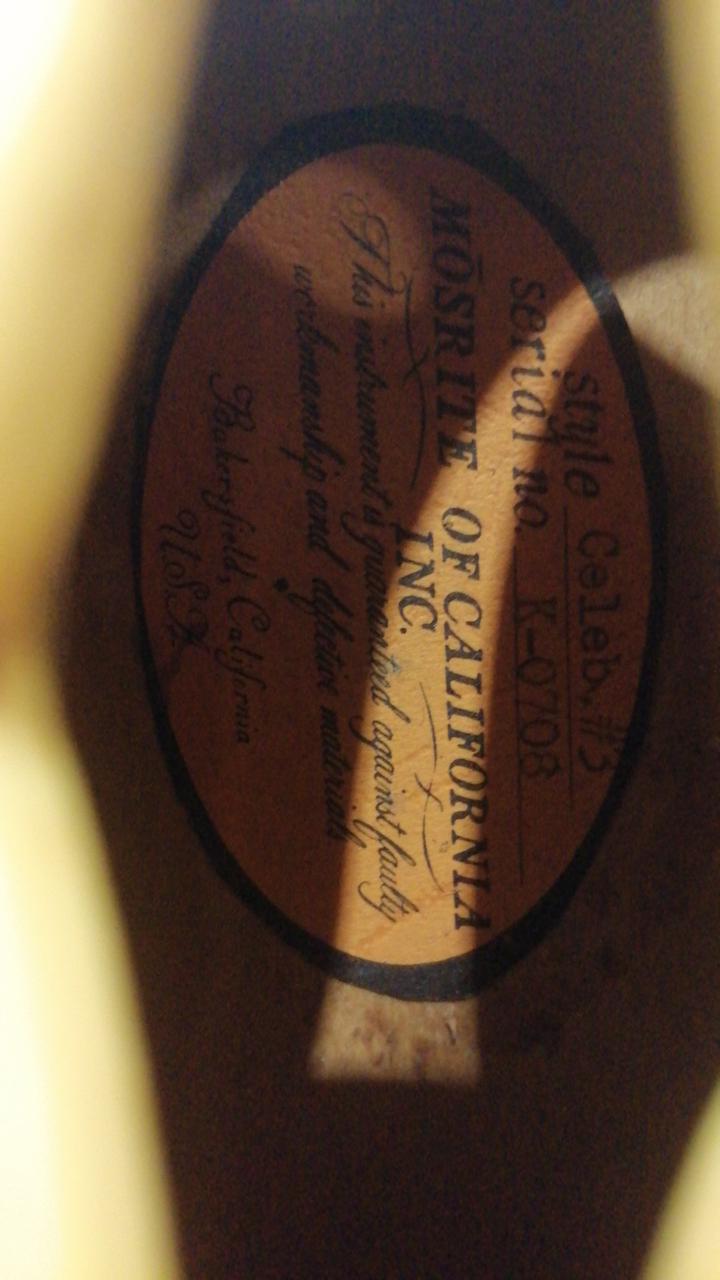 style Celeb.#3
serial no. K-0708
MŌSRITE OF CALIFORNIA
INC.
This instrument is guaranteed against faulty
workmanship and deffective materials
Bakersfield, California
U.S.A.